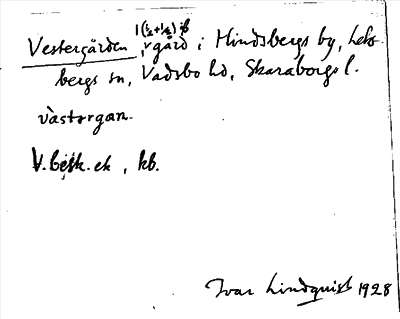 1(½+½) 
Vestergården, gård i Hindsbergs by, Leks-
bergs sn, Vadsbo hd, Skaraborgs l.
västərgan.
V. besk. ek, kb.
Ivar Lindquist 1928